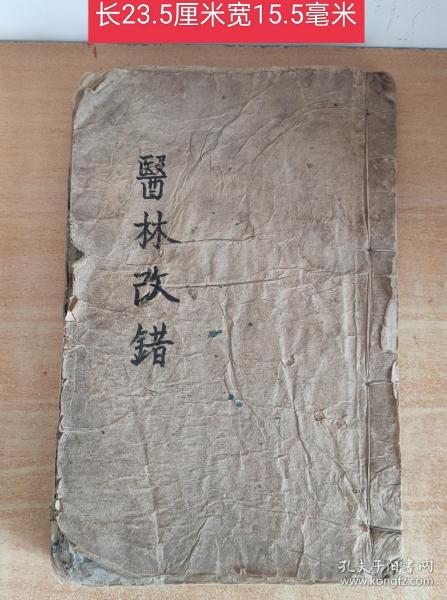 长23.5厘米宽15.5毫米
醫林改錯
孔夫子旧书网
www.kongfz.com